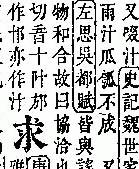 又啜汁史記魏世家
雨汁瓜瓠不成又
左思吳都賦皆與謠
物和合故曰協洽也
切音十邡
作亦作汁
求